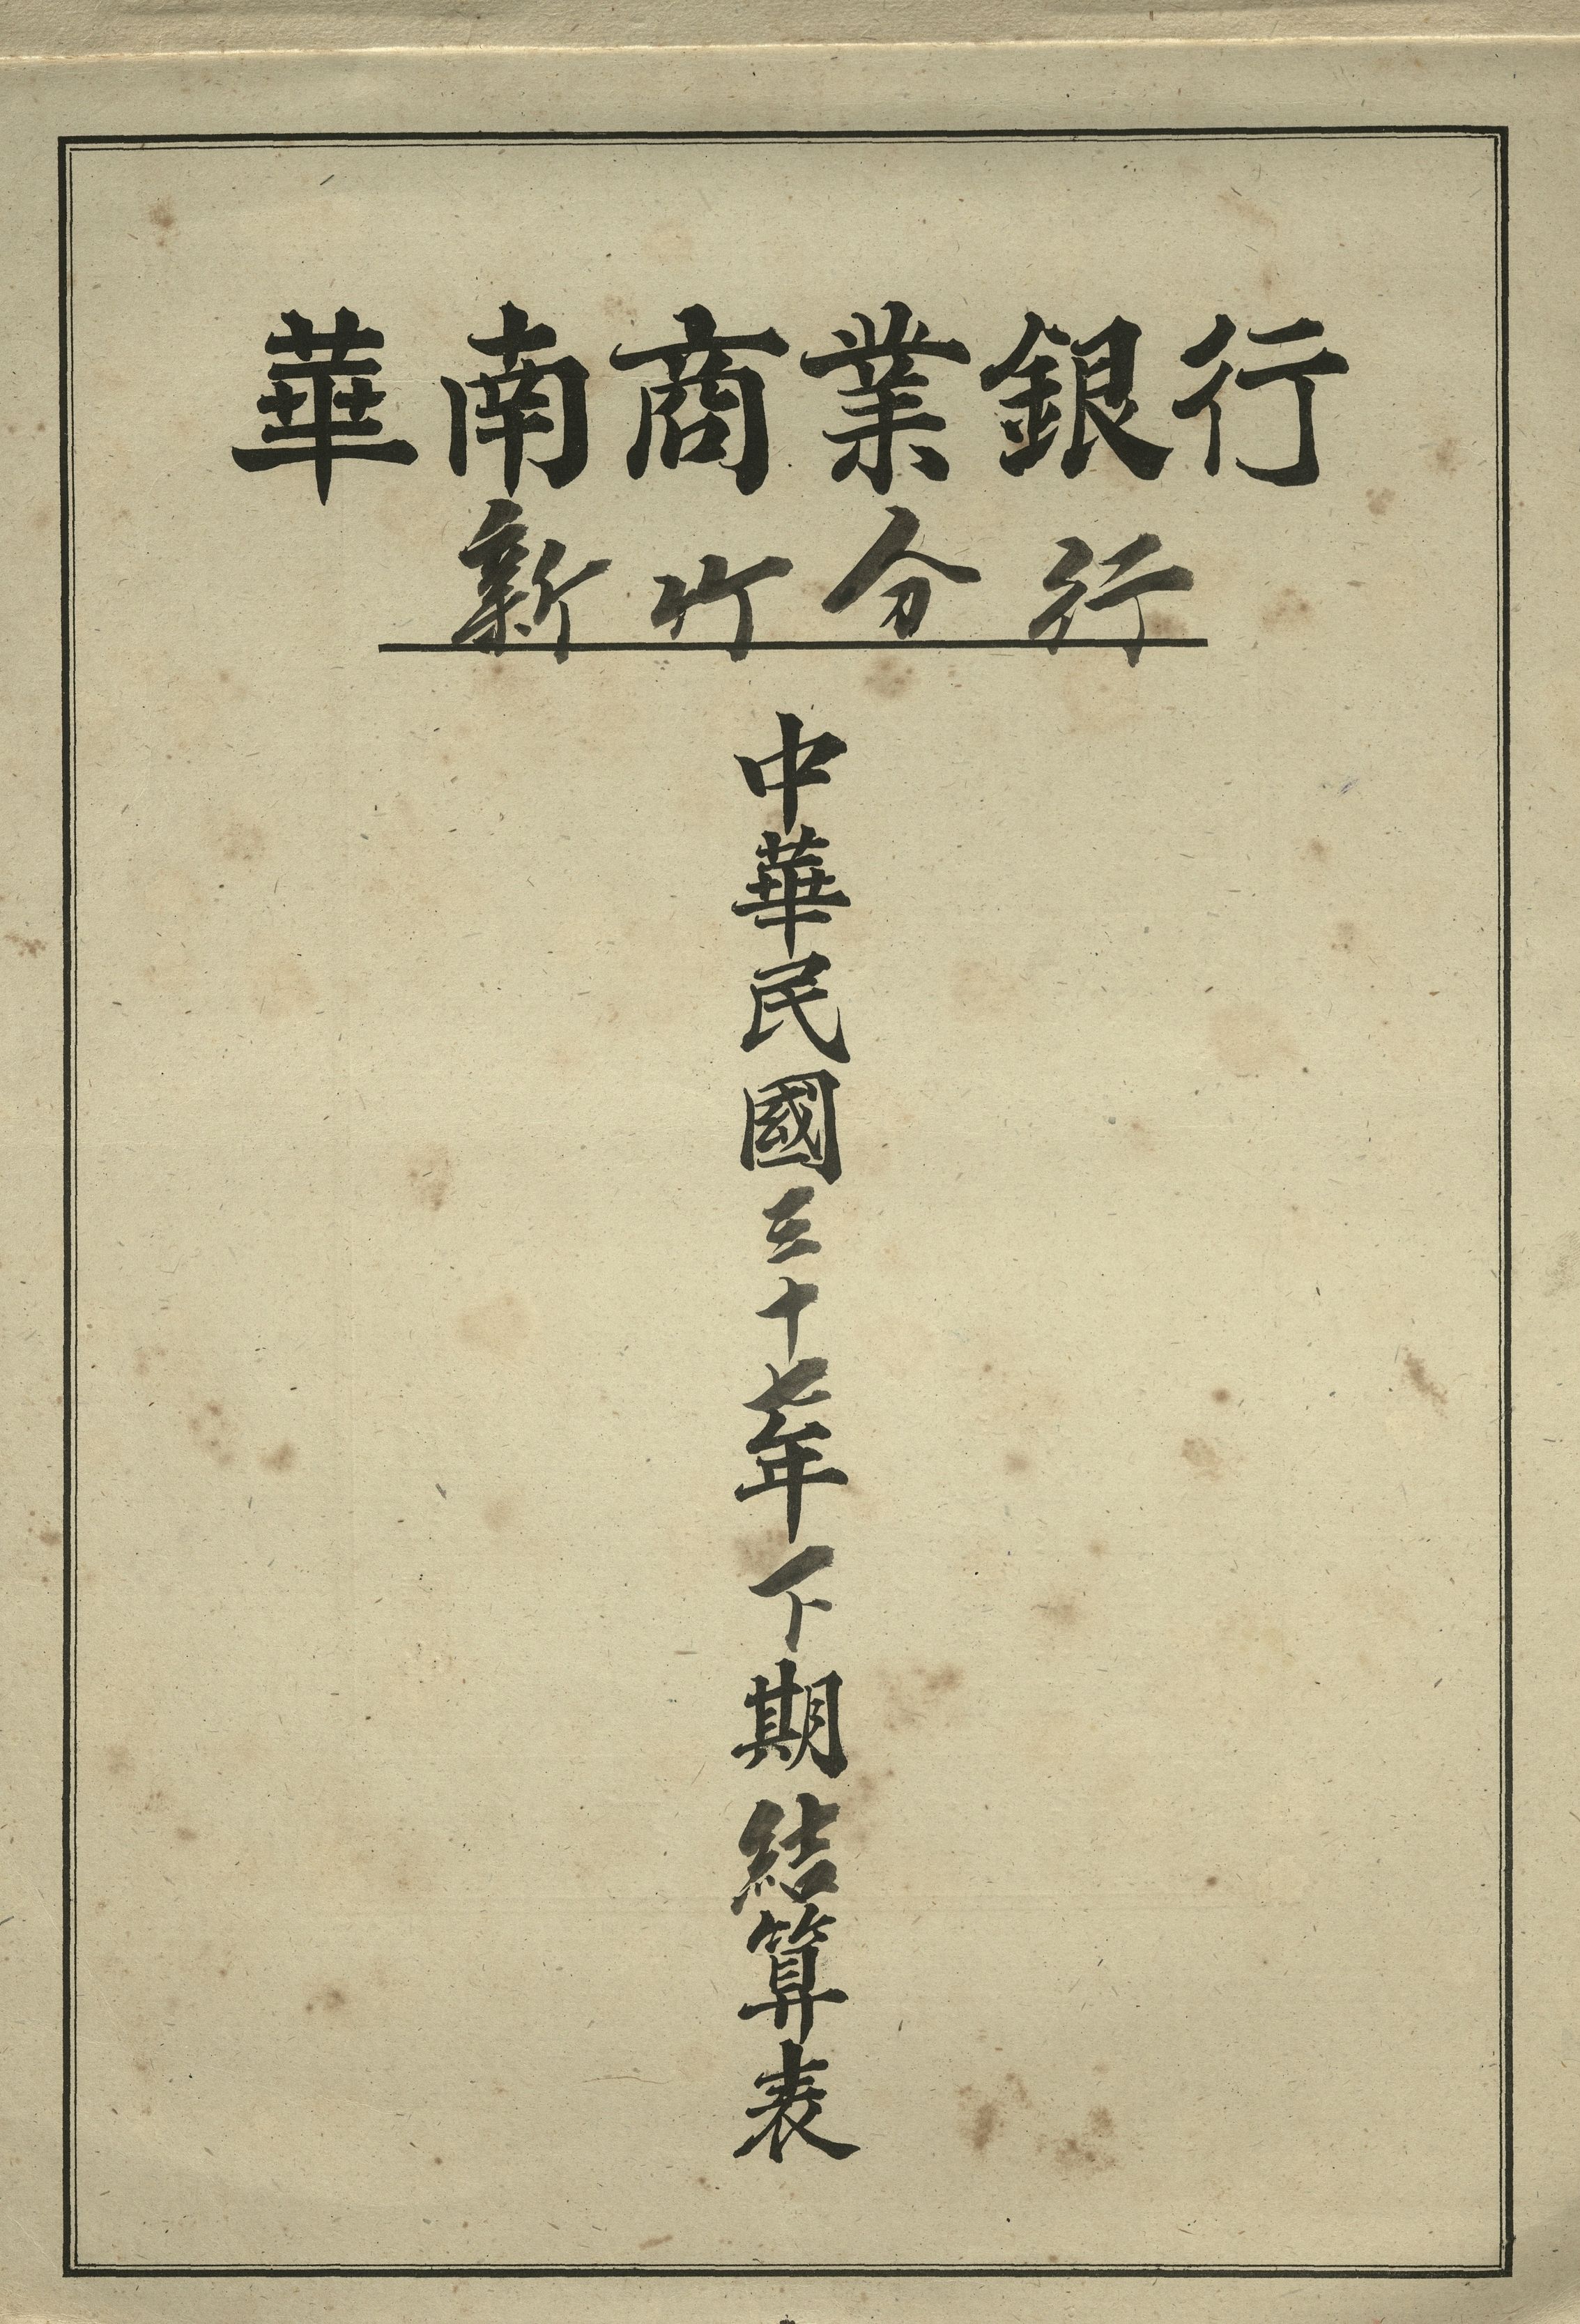 華南商業銀行
新竹分行
中華民國三十七年下期結算表